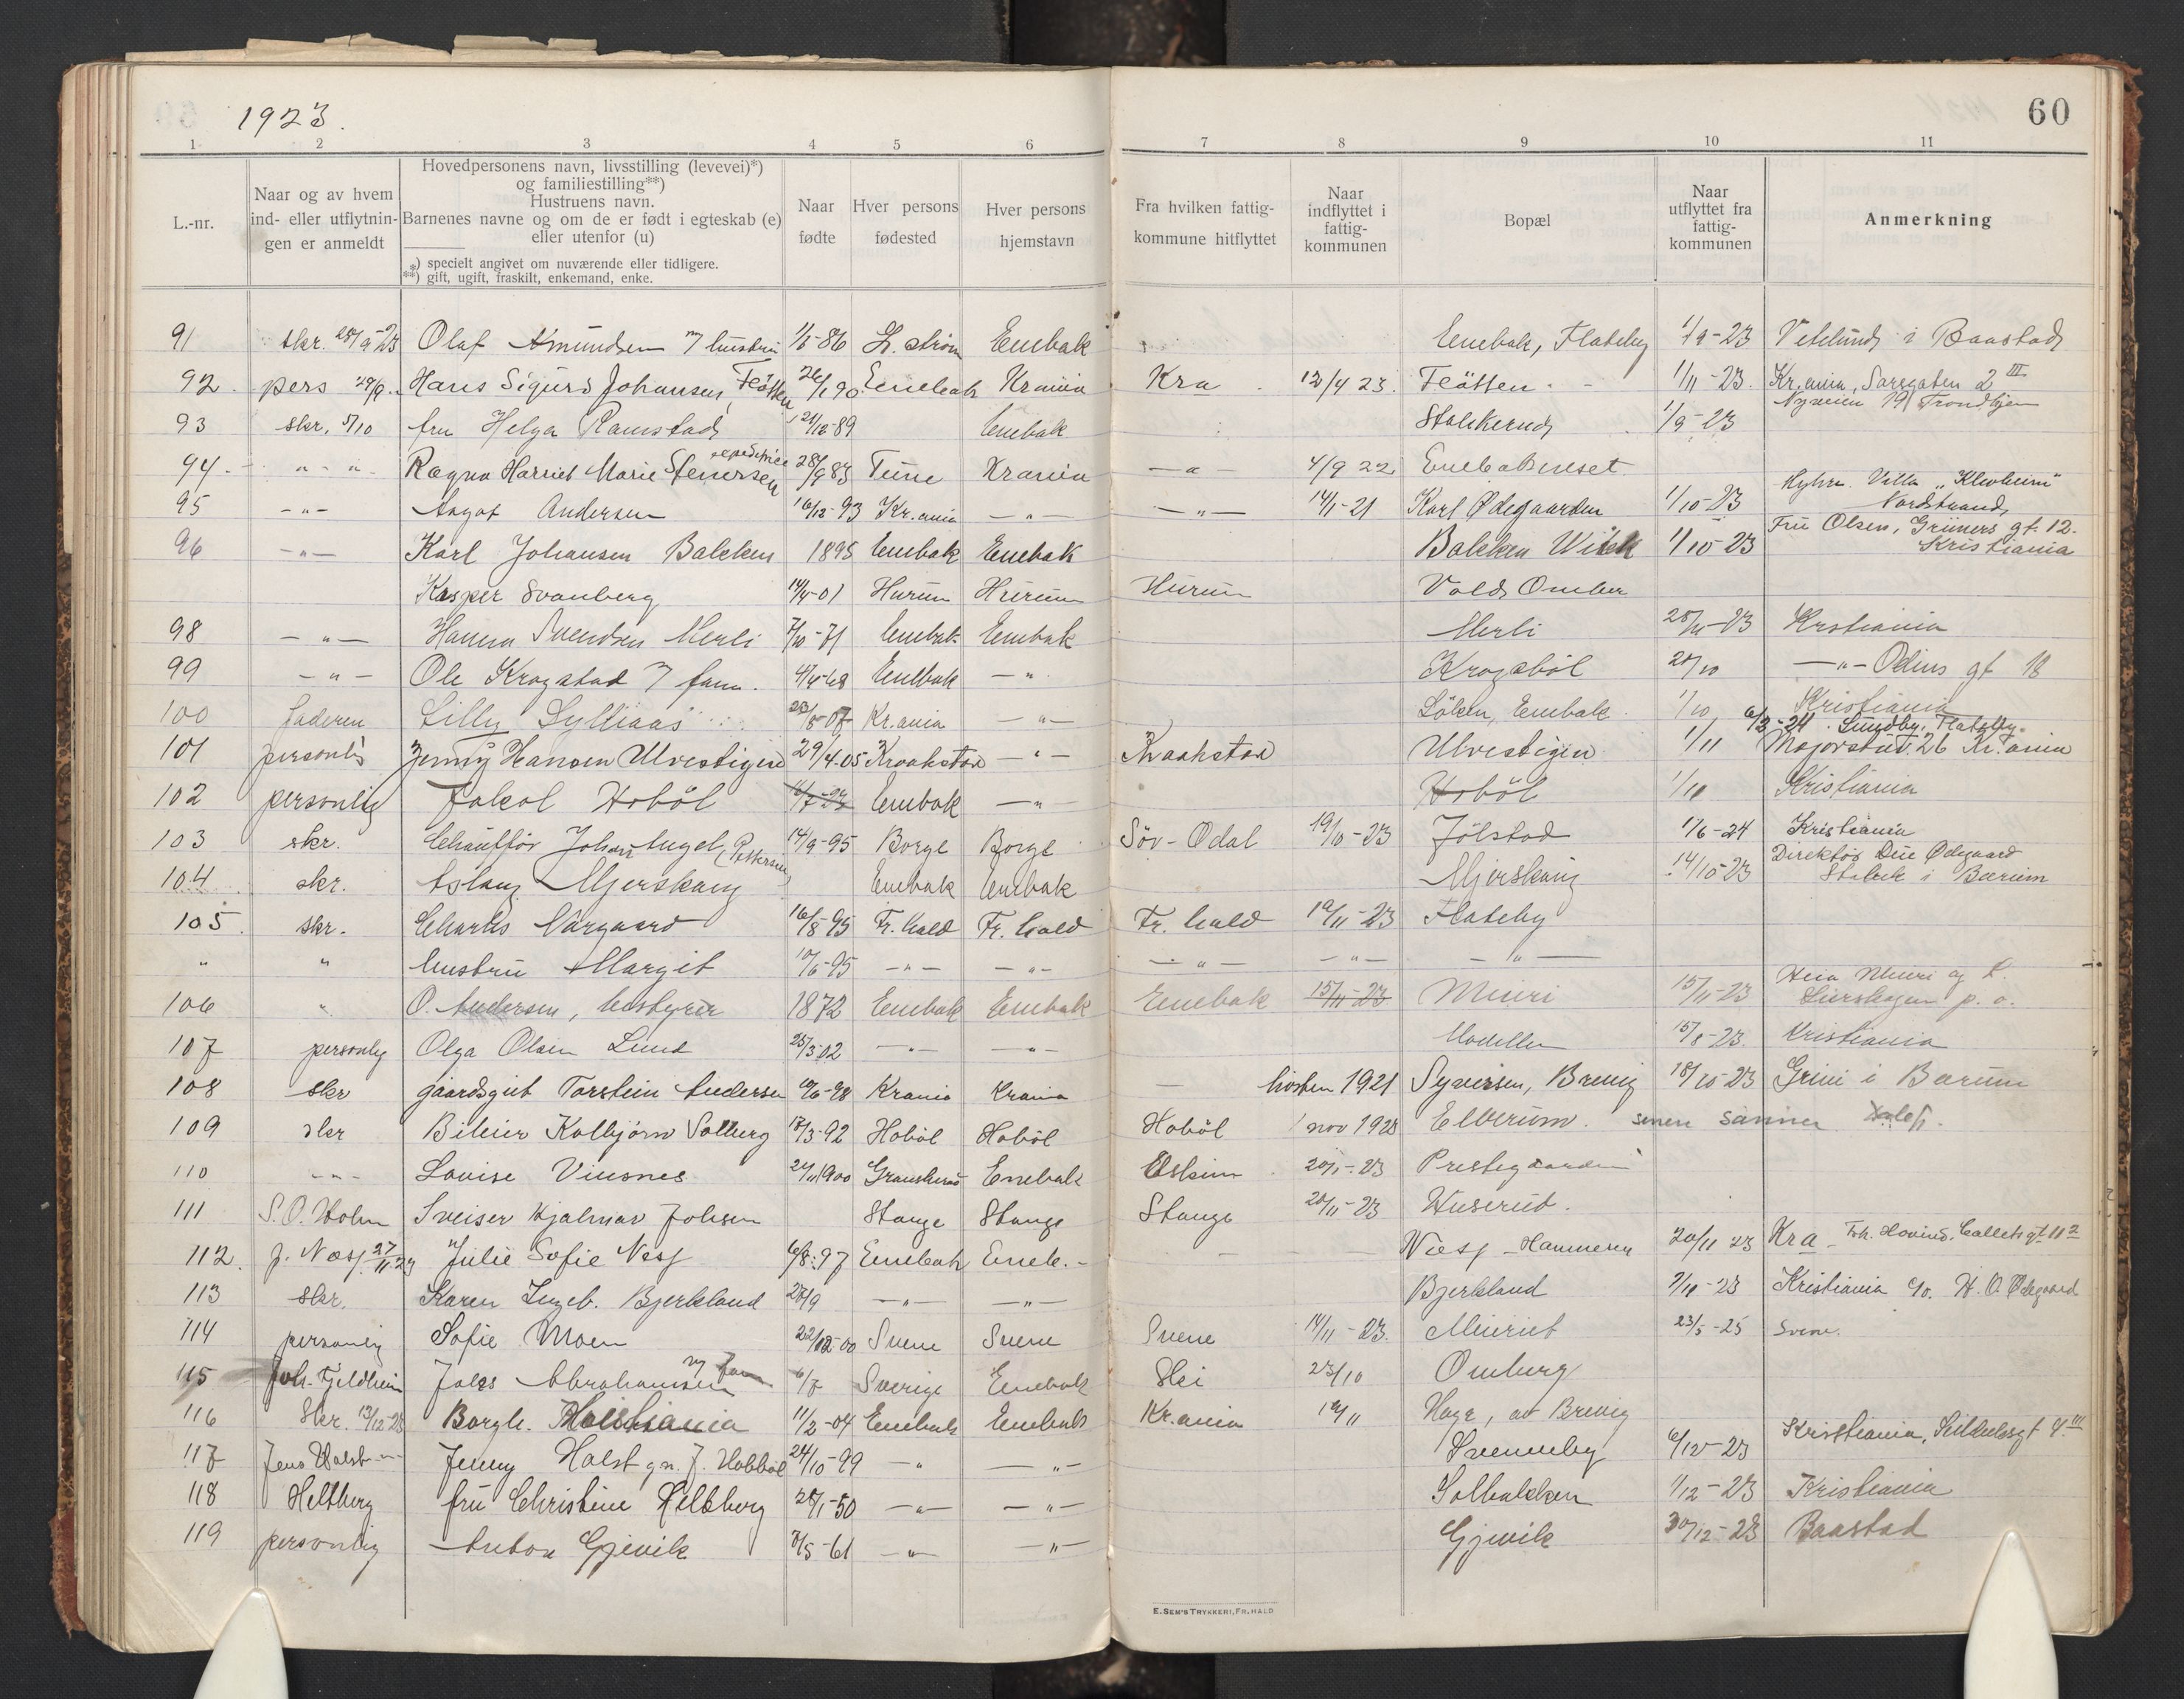 1923.
60
1 2 3 4 5 6 7 8 9 10 11
L.-nr.
Naar og av hvem ind- eller utflytningen er anmeldt
Hovedpersonens navn, livsstilling (levevei)*)
og familiestilling**)
Hustruens navn.
Barnenes navne og om de er født i egteskab (e)
eller utenfor (u)
*) specielt angivet om nuværende eller tidligere.
**) gift, ugift, fraskilt, enkemand, enke.
Naar fødte
Hver persons fødested
Hver persons hjemstavn
Fra hvilken fattigkommune hitflyttet
Naar indflyttet i fattigkommunen
Bopæl
Naar utflyttet fra fattigkommunen
Anmerkning
91 skr. 28/9-23 Olaf Amundsen m/ hustru 1/5-86 L.strøm Enebak Enebak, Flateby 1/9-23 Vetelund i Baastad
92. pers 29/9. Hans Sigurd Johansen, Tløtten 26/1 90. Enebak Krania Kra. 12/4 23. Tløtten 1/11-23. Kr.ania, Sarsgaten 2 III
93 skr. 5/10 fru Helga Ramstad 21/12-89 Enebak Stolkerud 1/9-23 Nyveien 19 Trondhjem
94. " " Ragna Harriet Marie Stenersen 28/9 83 Tune Krania — a 4/9 22. Enebakneset
95 —"— Aagot Andersen 16/12-93 Kr.ania —"— —"— 14/1-21 Karl Ødegaarden 1/10-23 Villa "Klevheim" Nordstrand
96 —"— Karl Johansen Bakken 1895 Enebak Enebak Bakken Wiik 1/10-23 Fru Olsen, Grüners gt. 12. Kristiania
Kasper Svanberg 14/4-01 Hurum Hurum Hurum Vold, Omber
98 —"— Hanna Svendsen Merli 7/10-71 Enebak Enebak Merli 28/10-23 Krstiania
99 —"— Ole Krogstad m/ fam. 4/4-68 Enebak —"— Krogsböl 28/10 —"— Odins gt 18
100 faderen Lilly Lylliaas 23/5-07 Kr.ania —"— Löken, Enebak 1/10 Kristiania
6/2-24. Lundby, Flateby
101 personlig Jenny Hansen Ulvestigen 29/4.05 Kraakstad —"— Kraakstad Ulvestigen 1/11 Majorstuv. 26 Kr.ania
102 personlig Jakob Hoböl Enebak —"— Hoböl 1/10 Kristiania
103 skr. Chauffør Johan Angel Pettersen 14/9-95 Borge Borge Sör-Odal 19/10-23 Jölstad 1/6-24 Kristiania
104 skr. Aslaug Mjerskaug Enebak Enebak Mjerskaug 14/10-23 Direktør Due Ødegaard Stabæk i Bærum
105 skr. Charles Aargaard 16/8-95 Fr.hald Fr.hald Fr.hald 19/11-23 Flateby
" " hustru Margit 10/6-95 —"— —"— —"— —"— —"—
106 " O. Andersen, bestyrer 1872 Enebak Enebak Enebak 15/11-23 Muri 15/11-23 p.o.
107 personlig Olga Olsen Lund 25/3-02 —"— —"— 15/8-23. Kristiania
108 skr gaardsgut Torstein Andersen 10/6-98 Krania Krania — høsten 1921 Syversen, Brevig 18/10-23 Grini i Bærum
109 skr Kolbjörn Solberg 17/3-92 Hoböl Hoböl Hoböl nov 1923 Elverum.
110 —"— Louise Vinsnes 24/11 1900 Enebak 20/11-23 Prestegaarden
111 S.O. Holm Sveiser Hjalmar Johnsen Stange Stange Stange 20/11-23 Huserud.
112. J. Næss 27/11-23 Julie Sofie Nesj 6/8.97 Enebak Eneb.- — — Hammeren 20/11 23 Kra.
113 skr. Karen Ingeb. Bjerkland 28/9 —"— —"— Bjerkland 7/10-23 Kristiania c/o. H.O. Ødegaard
114 personlig Sofie Moen 22/12-00 Svene Svene Svene 14/11-23. 23/5-25 Svene.
115 Joh. Fjeldheim Abrahamsen m/ fam 6/7 Sverige Enebak Ski 23/10 Omberg
116 Skr. 13/12-23 Borgh. 11/2-04 Enebak Enebak Kr.ania 10/11 Haga, av Brevig
117 Jens Halst Jenny Halst gm. J. Hobböl 24/10-99 —"— —"— Svenneby 6/12-23 Kristiania,
118 Heltberg fru Christine Heltberg 28/1-50 —"— —"— Solbakken 1/12-23 Kristiania
119 personlig Anton Gjevik 7/5-61 —"— —"— Gjevik 30/12-23 Baastad
E. SEM'S TRYKKERI, FR.HALD